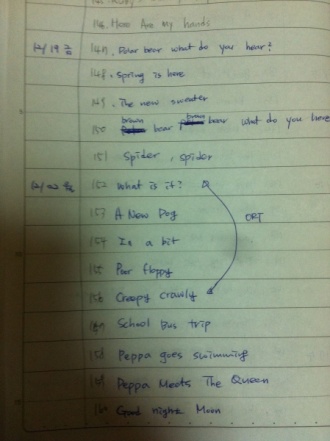 146. Here Are My hands
12/19 147. Polar bear what do you hear?
148. Spring is here
149. The new sweater
150 brown bear brown bear what do you hear
151 Spider, spider
12/22 152 What is it?
153 A New Dog ORT
154 In a bit
155 Poor floppy
156 Creepy crawly
157 School Bus trip
158 Peppa goes swimming
159 Peppa Meets The Queen
160 Good night Moon